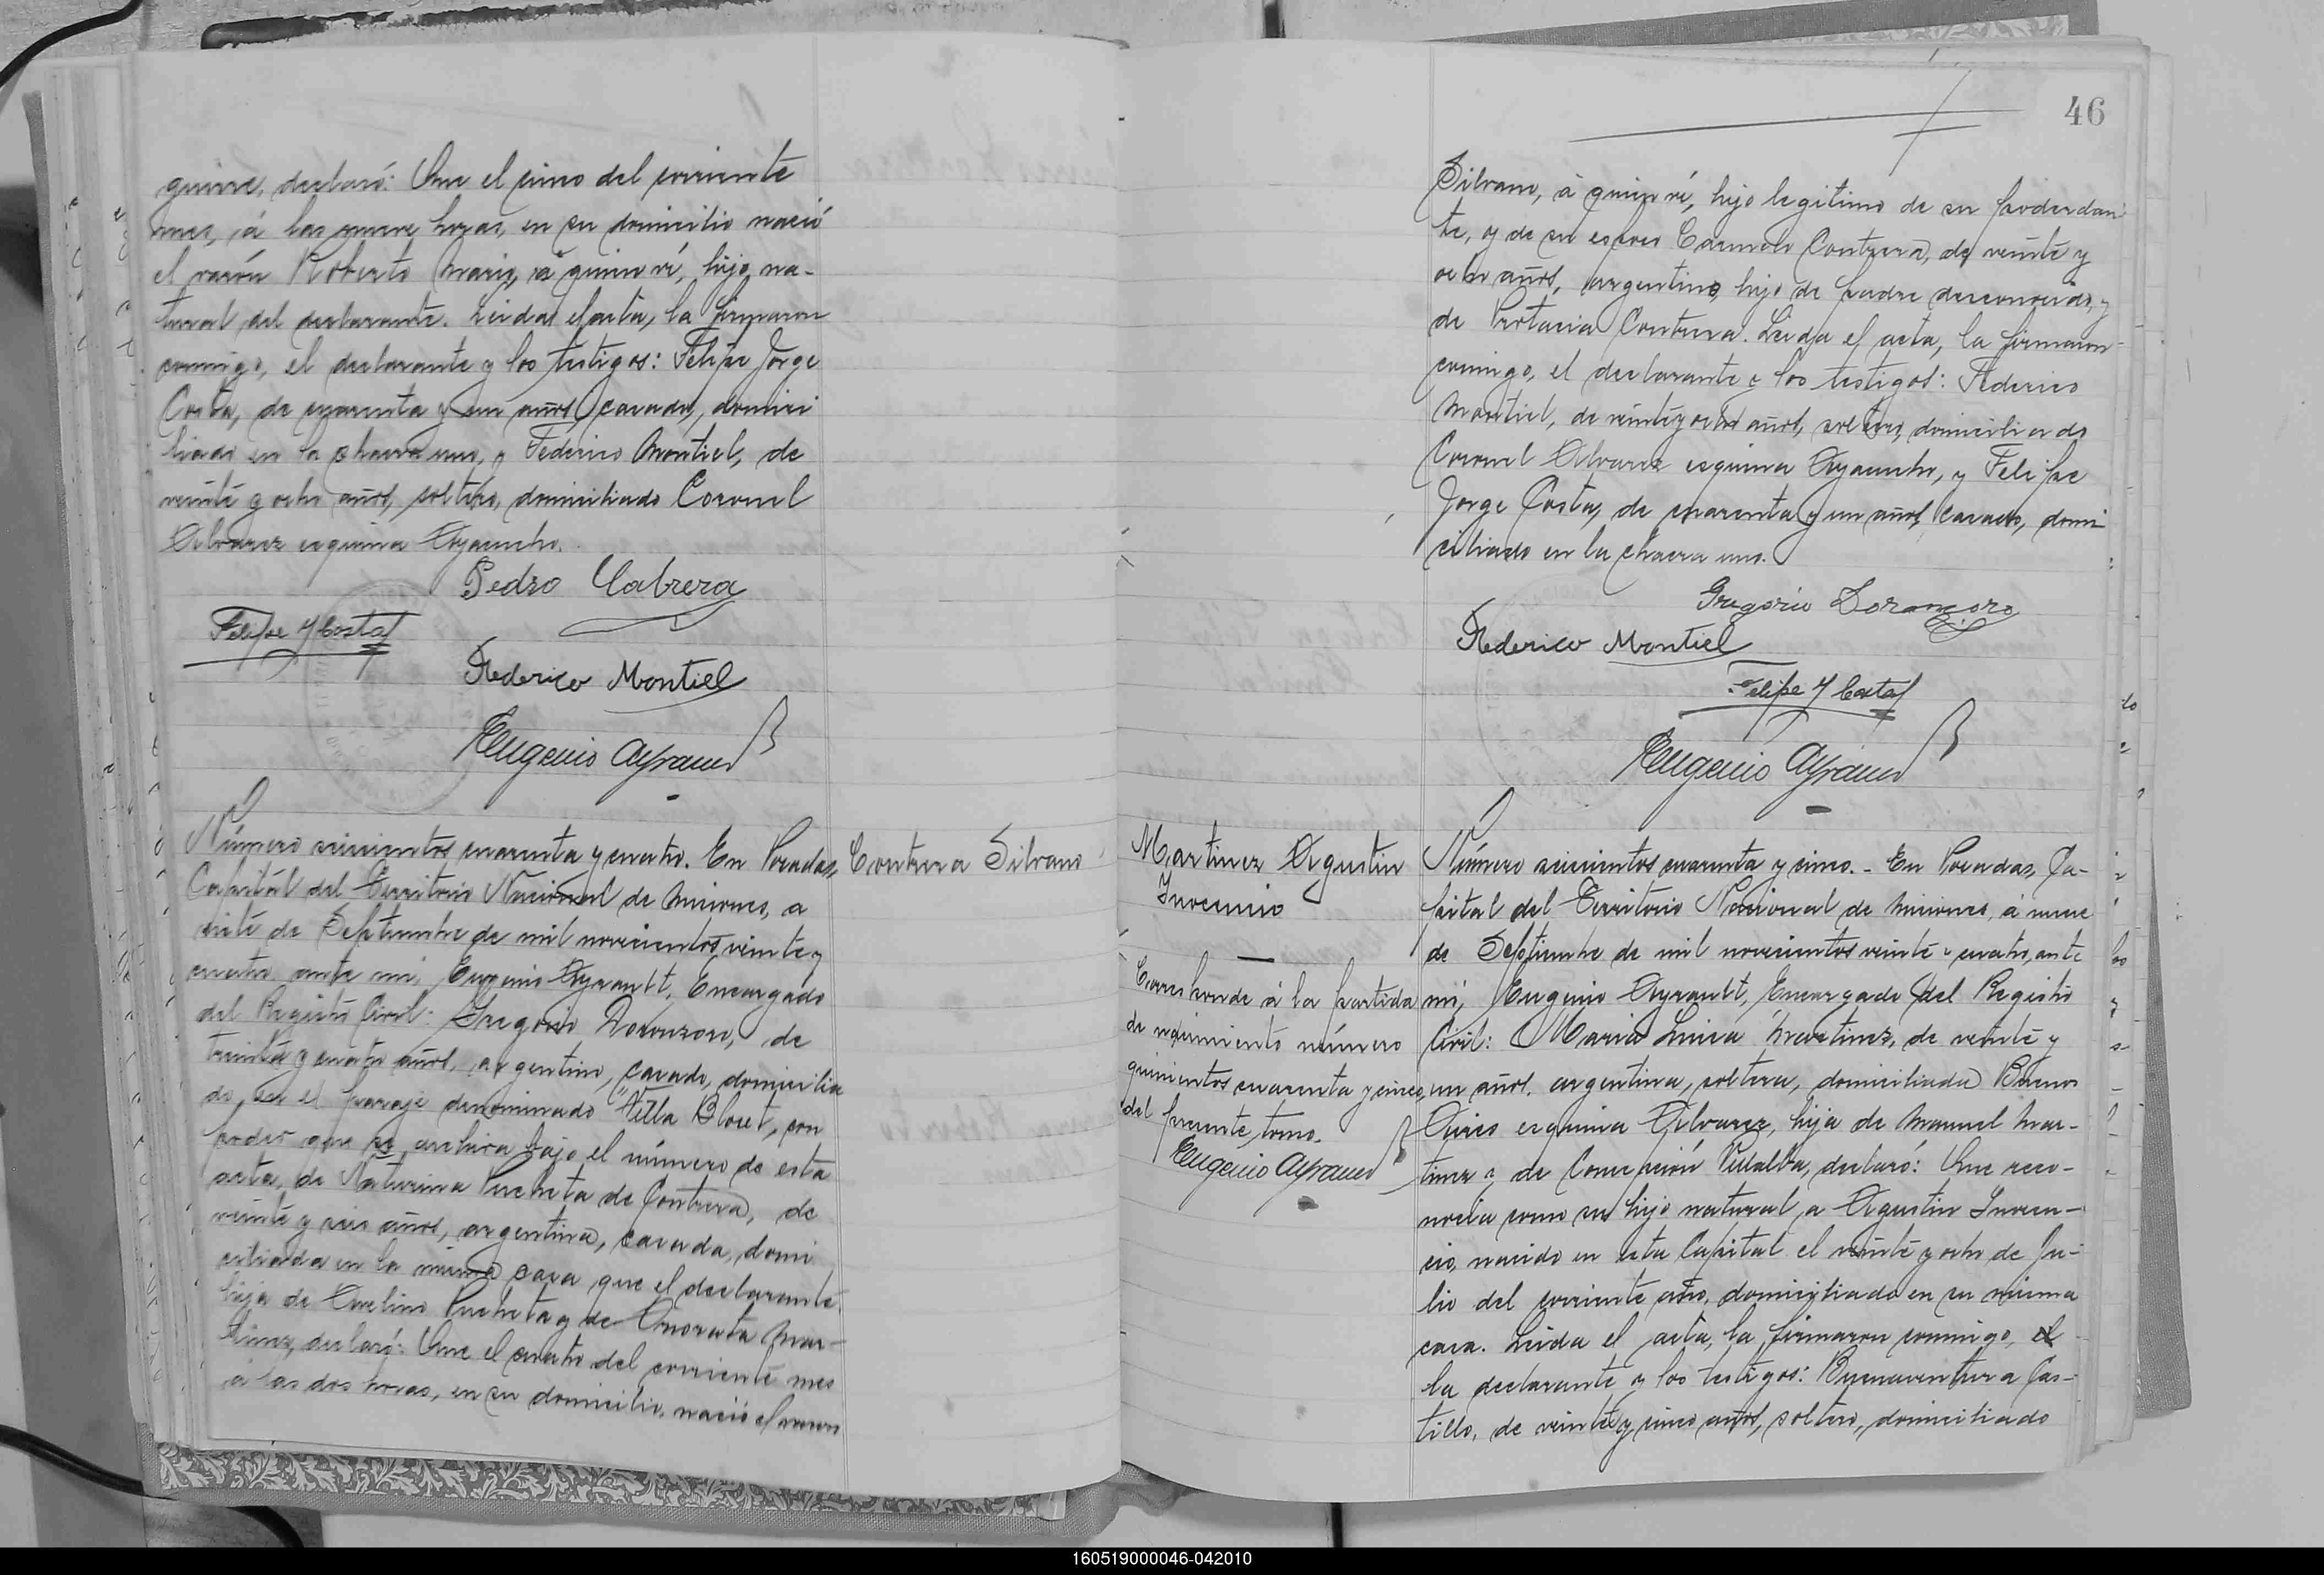 guirre, declaró: Que el cinco del corriente
mes, á las nueve horas, en su domicilio nació
el varón Roberto Mario, á quien ví, hijo na-
tural del declarante. Leida el acta, la firmaron
conmigo, el declarante y los testigos: Felipe Jorge
Costa, de cuarenta y un años, casado, domici
liado en la chacra uno, y Federico Montiel, de
veinte y ocho años, soltero, domiciliado Coronel
Alvarez esquina Ayacucho.
Pedro Cabrera
Felipe J Costa
Federico Montiel
Eugenio Ayrault
Número seiscientos cuarenta y cuatro. En Posadas,
Capital del Territorio Nacional de Misiones, a
siete de Septiembre de mil novecientos veinte y
cuatro, ante mi, Eugenio Ayrault, Encargado
del Registro Civil: Gregorio Doronzoro, de
treinta y cuatro años, argentino, casado, domicilia
do, en el paraje denominado "Villa Blosset, con
poder que se archiva bajo el número de esta
acta, de Naturina Pucheta de Contrera, de
veinte y seis años, argentina, casada, domi
ciliada en la misma casa que el declarante,
hija de Avelino Pucheta y de Onorata Mar-
tinez, declaró: Que el cuatro del corriente mes
á las dos horas, en su domicilio, nació el varon
Contrera Silvano
46
Silvano, á quien ví, hijo legitimo de su poderdan
te, y de su esposo Carmelo Contrera, de veinte y
ocho años, argentino, hijo de padre desconocido, y
de Protacia Contrera. Leida el acta, la firmaron
conmigo, el declarante y los testigos: Federico
Montiel, de veinte y ocho años, soltero, domiciliado
Coronel Alvarez esquina Ayacucho, y Felipe
Jorge Costa, de cuarenta y un años, casado, domi
ciliado en la chacra uno.
Gregorio Doronzoro
Federico Montiel
Felipe J Costa
Eugenio Ayrault
Martinez Agustin
Inocencio
Corresponde á la partida
de nacimiento número
quinientos cuarenta y cinco,
del presente tomo.
Eugenio Ayrault
Número seiscientos cuarenta y cinco. - En Posadas, Ca-
pital del Territorio Nacional de Misiones, á nueve
de Septiembre de mil novecientos veinte y cuatro, ante
mi, Eugenio Ayrault, Encargado del Registro
Civil: Maria Luisa Martinez, de veinte y
un años, argentina, soltera, domiciliada Buenos
Aires esquina Alvarez, hija de Manuel Mar-
tinez y de Concepción Villalba, declaró: Que reco-
nocia como su hijo natural, a Agustin Inocen-
cio, nacido en esta Capital el veinte y ocho de Ju-
lio del corriente año, domiciliado en su misma
casa. Leida el acta, la firmaron conmigo, el
la declarante y los testigos: Buenaventura Cas-
tillo, de veinte y cinco años, soltero, domiciliado
160519000046-042010